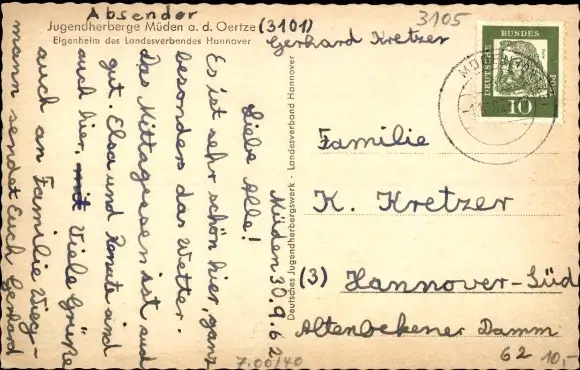 Absender
Jugendherberge Müden a. d. Oertze (3101)
Eigenheim des Landesverbandes Hannover
Gerhard Kretzer
3105
DEUTSCHE BUNDESPOST
10
Müden 30.9.62
Liebe Alle!
Es ist sehr schön hier, ganz
besonders das Wetter.
Das Mittagessen ist auch
gut. Elsa und Renate sind
auch hier, mit Viele Grüße
auch an Familie Wieg-
mann sendet Euch Gerhard
Deutsches Jugendherbergswerk - Landesverband Hannover
Familie
K. Kretzer
(3) Hannover-Süd
Altenbekener Damm
62
7.00/40
10,-